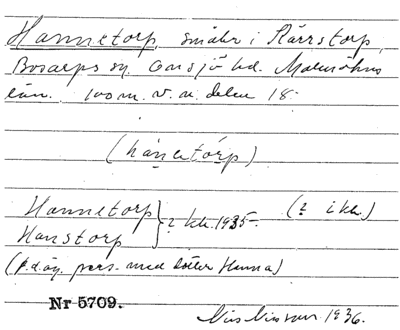 Hannetorp, småbr i Kärrstorp,
Bosarps sn. Onsjö hd. Malmöhus
län. 100 m. v. u. delen 18.
(hànetórp)
Hannetorp
Hanstorp } ? kk. 1935. (? i kk.)
(f.d. äg. pers. med dotter Hanna)
Nr 5709.
Nils Nilsson 1936.